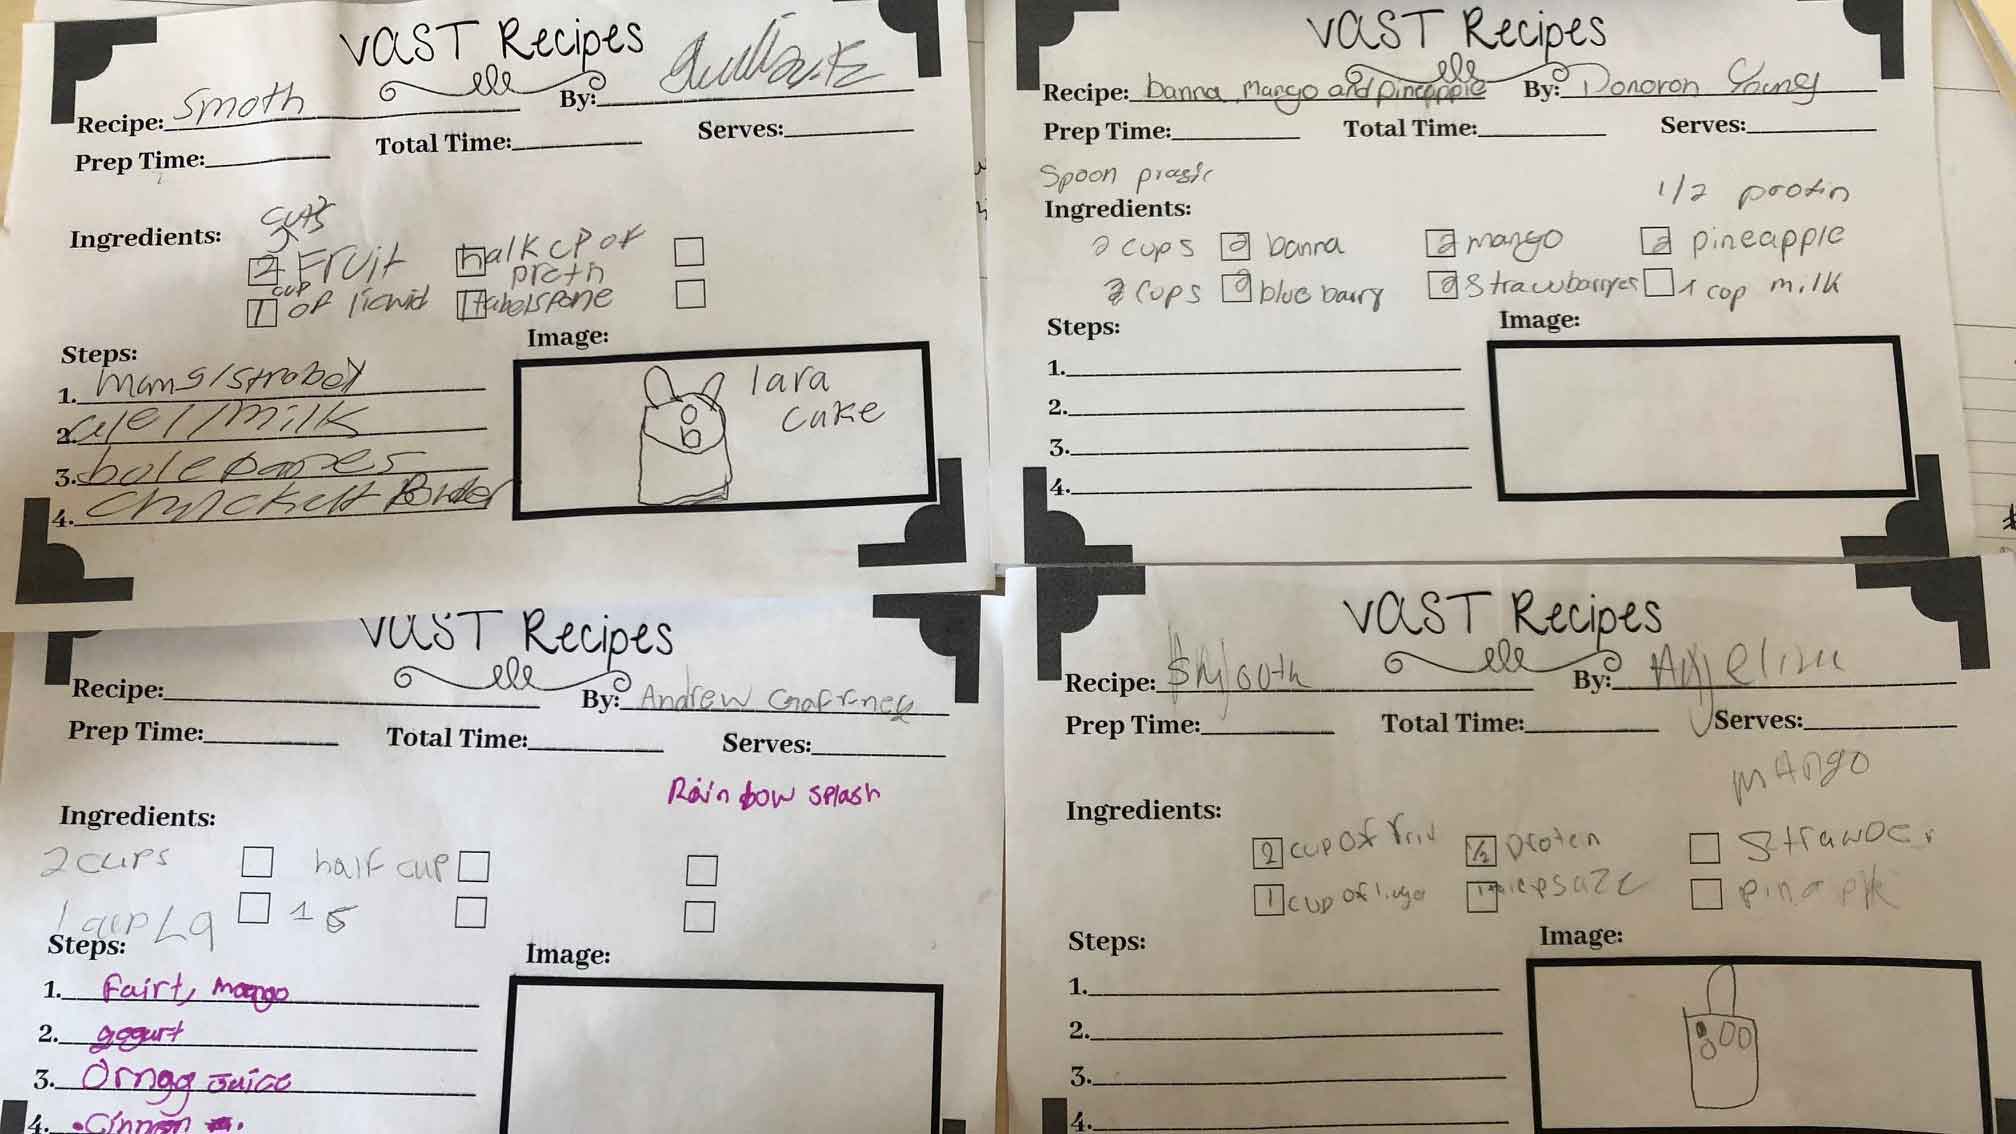 VAST Recipes
Recipe: Smoth By:
Prep Time: Total Time: Serves:
Ingredients:
2 Fruit halk cp of
pretn
cup
1 of licwid 1 tabelspone
Steps: Image:
1. mang/strobey
2. /milk
3.
4.
lara
cake
VAST Recipes
Recipe: banna, Mango and pineapple By: Donoron Young
Prep Time: Total Time: Serves:
Spoon
1/2 protin
Ingredients:
2 cups 2 banna 2 mango 2 pineapple
2 cups 2 blue barry 2 Strawbarryes 1 cop milk
Steps: Image:
1.
2.
3.
4.
VAST Recipes
Recipe: By: Andrew Gaffney
Prep Time: Total Time: Serves:
Rainbow splash
Ingredients:
2 cups half cup
1 cup Lq 1 s
Steps: Image:
1. Fairt, mango
2. yogurt
3. Orngg Juice
4. Cinnon
VAST Recipes
Recipe: Smooth By: Anjelina
Prep Time: Total Time: Serves:
mango
Ingredients:
2 cup of 1/2 proten Strawber
1 cup of pinapple
Steps: Image:
1.
2.
3.
4.